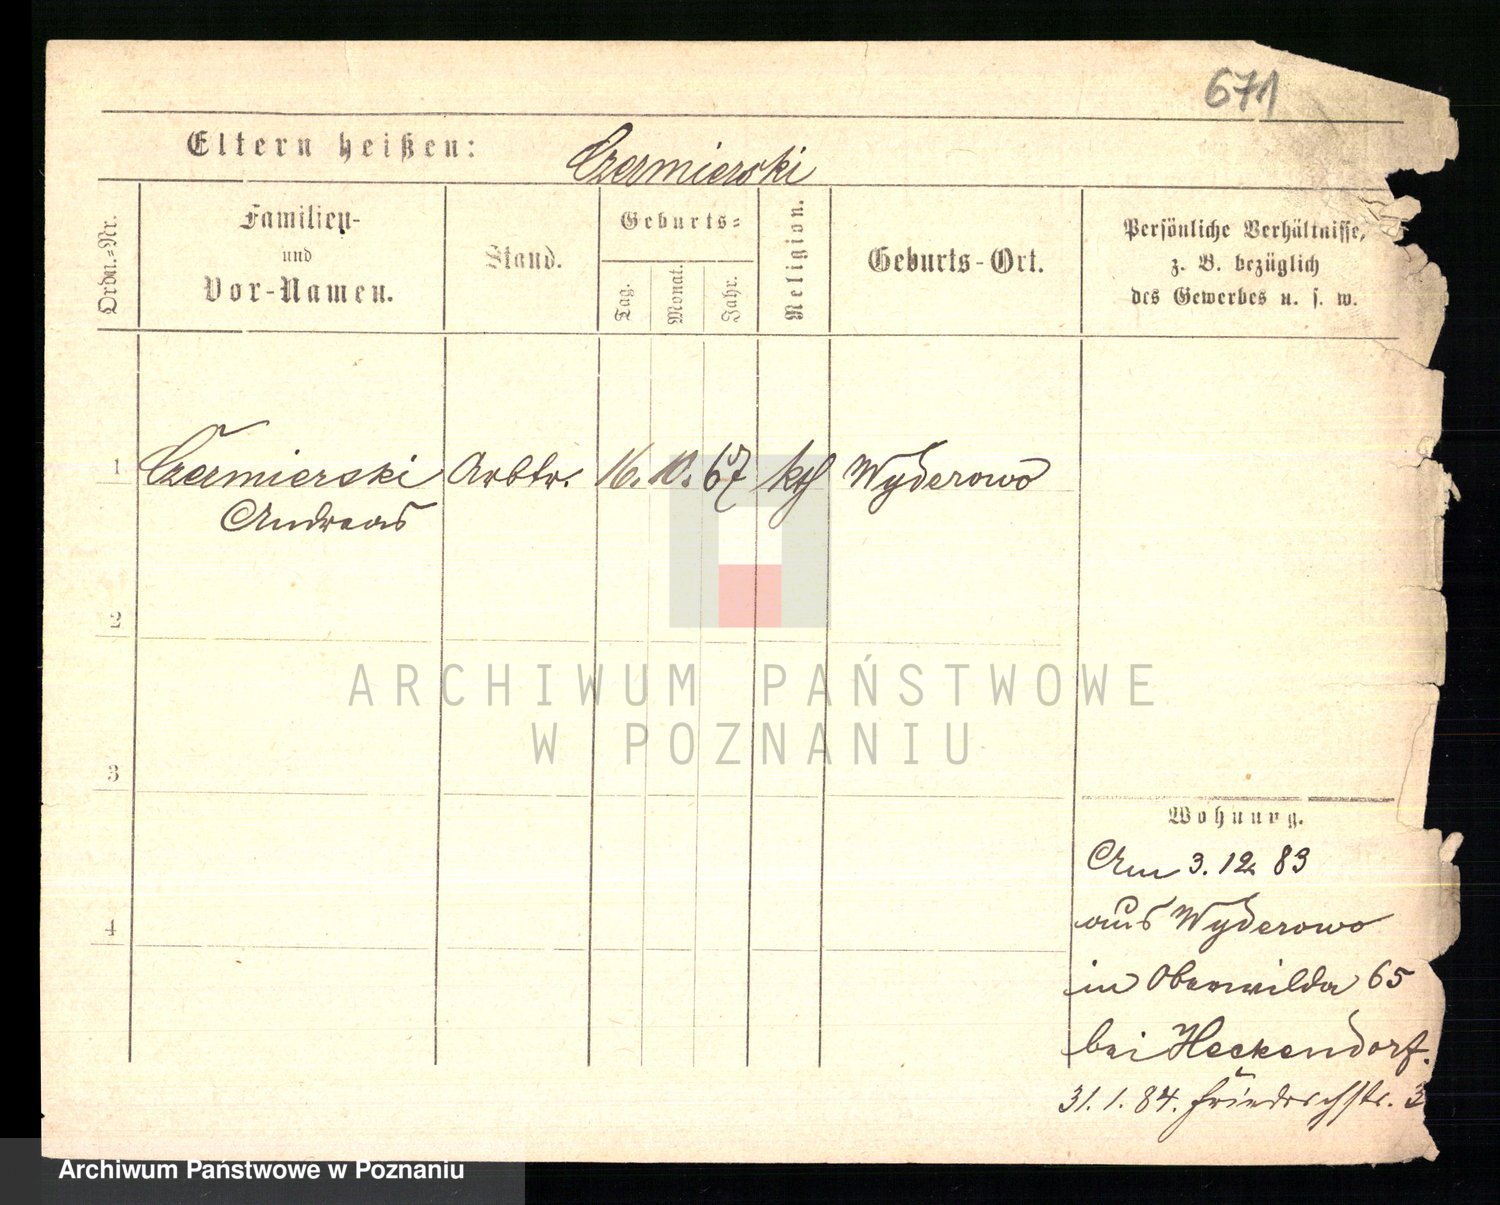 671
Eltern heißen: Czermierski
Ordn.-Nr.
Familien-
und
Vor-Namen.
Stand.
Geburts-
Tag.
Monat.
Jahr.
Religion.
Geburts-Ort.
Persönliche Verhältnisse,
z. B. bezüglich
des Gewerbes u. s. w.
1 Czermierski Arbtr. 16. 10. 67 kth Wyderowo
Andreas
2
3
4
Wohnung.
Am 3. 12 83
aus Wyderowo
in Oberwilda 65
bei Heckendorf.
31. 1. 84. Friedrichstr. 3
ARCHIWUM PAŃSTWOWE
W POZNANIU
Archiwum Państwowe w Poznaniu